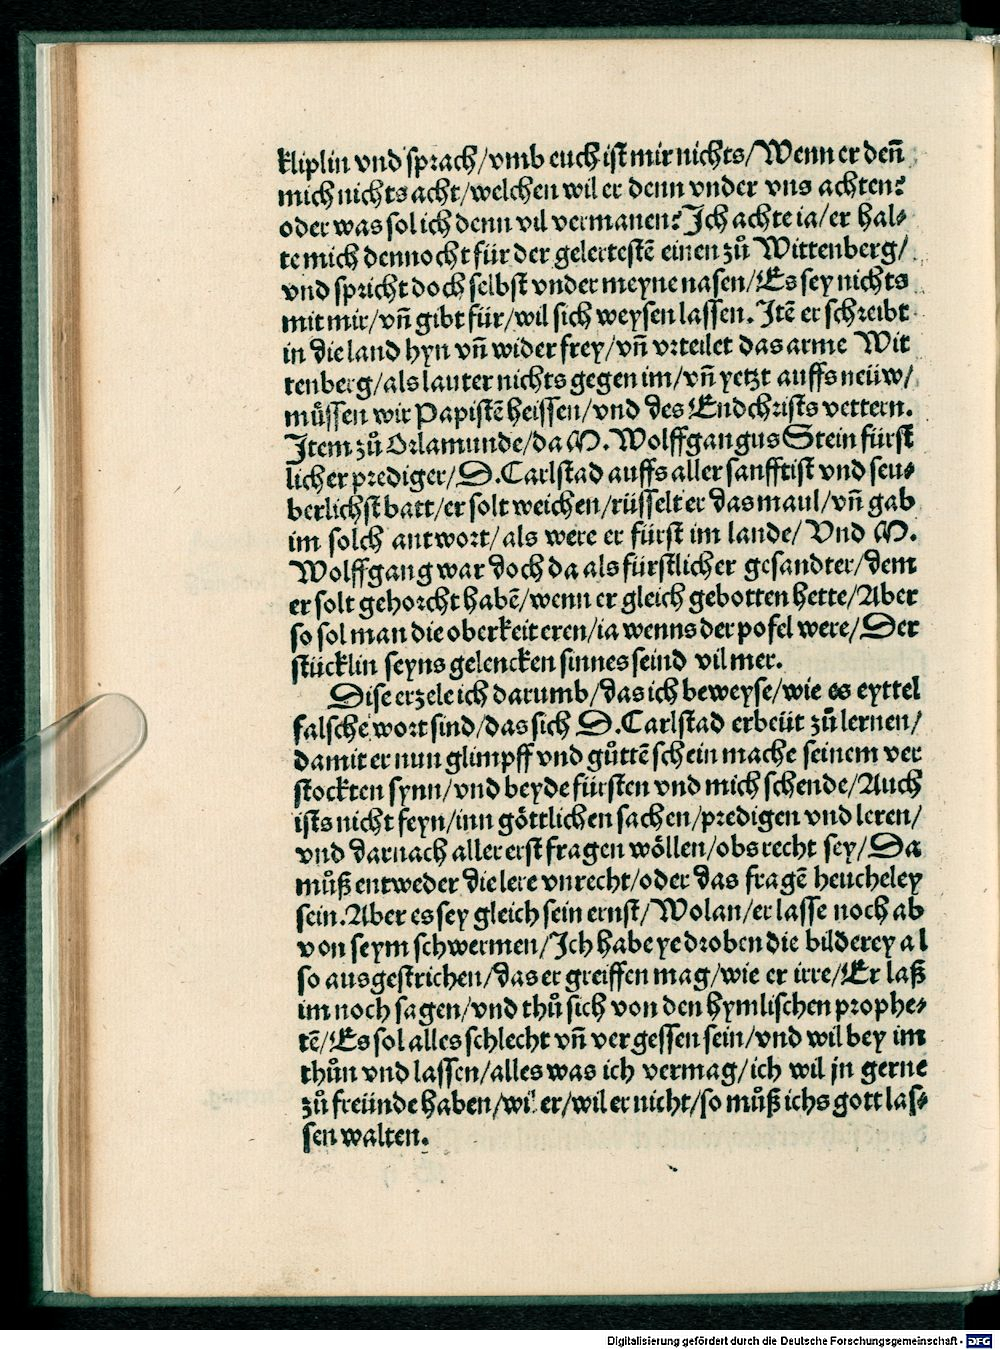 kliplin vnd sprach/vmb euch ist mir nichts/Wenn er den̄
mich nichts acht/welchen wil er denn vnder vns achten?
oder was sol ich denn vil vermanen? Ich achte ia/er hal⸗
te mich dennocht für der gelertestē einen zů Wittenberg/
vnd spricht doch selbst vnder meyne nasen/Es sey nichts
mit mir/vn̄ gibt für/wil sich weysen lassen. Itē er schreibt
in die land hyn vn̄ wider frey/vn̄ vrteilet das arme Wit
tenberg/als lauter nichts gegen im/vn̄ yetzt auffs neüw/
můssen wir Papistē heissen/vnd des Endchrists vettern.
Item zů Orlamunde/da M. Wolffgangus Stein fürst
licher prediger/D. Carlstad auffs aller sanfftist vnd seu⸗
berlichst batt/er solt weichen/rüsselt er das maul/vn̄ gab
im solch antwort/als were er fürst im lande/ Vnd M.
Wolffgang war doch da als fürstlicher gesandter/dem
er solt gehorcht habē/wenn er gleich gebotten hette/Aber
so sol man die oberkeit eren/ia wenns der pofel were/Der
stücklin seyns gelencken sinnes seind vil mer.
Dise erzele ich darumb/das ich beweyse/wie es eyttel
falsche wort sind/das sich D. Carlstad erbeüt zů lernen/
damit er nun glimpff vnd gůttē schein mache seinem ver
stockten synn/vnd beyde fürsten vnd mich schende/Auch
ists nicht feyn/inn göttlichen sachen/predigen vnd leren/
vnd darnach aller erst fragen wöllen/obs recht sey/Da
můß entweder die lere vnrecht/oder das fragē heucheley
sein. Aber es sey gleich sein ernst/Wolan/er lasse noch ab
von seym schwermen/Ich habe ye droben die bilderey al
so ausgestrichen/das er greiffen mag/wie er irre/Er laß
im noch sagen/vnd thů sich von den hymlischen prophe⸗
tē/Es sol alles schlecht vn̄ vergessen sein/vnd wil bey im
thůn vnd lassen/alles was ich vermag/ich wil jn gerne
zů freünde haben/wil er/wil er nicht/so můß ichs gott las⸗
sen walten.
Digitalisierung gefördert durch die Deutsche Forschungsgemeinschaft - DFG